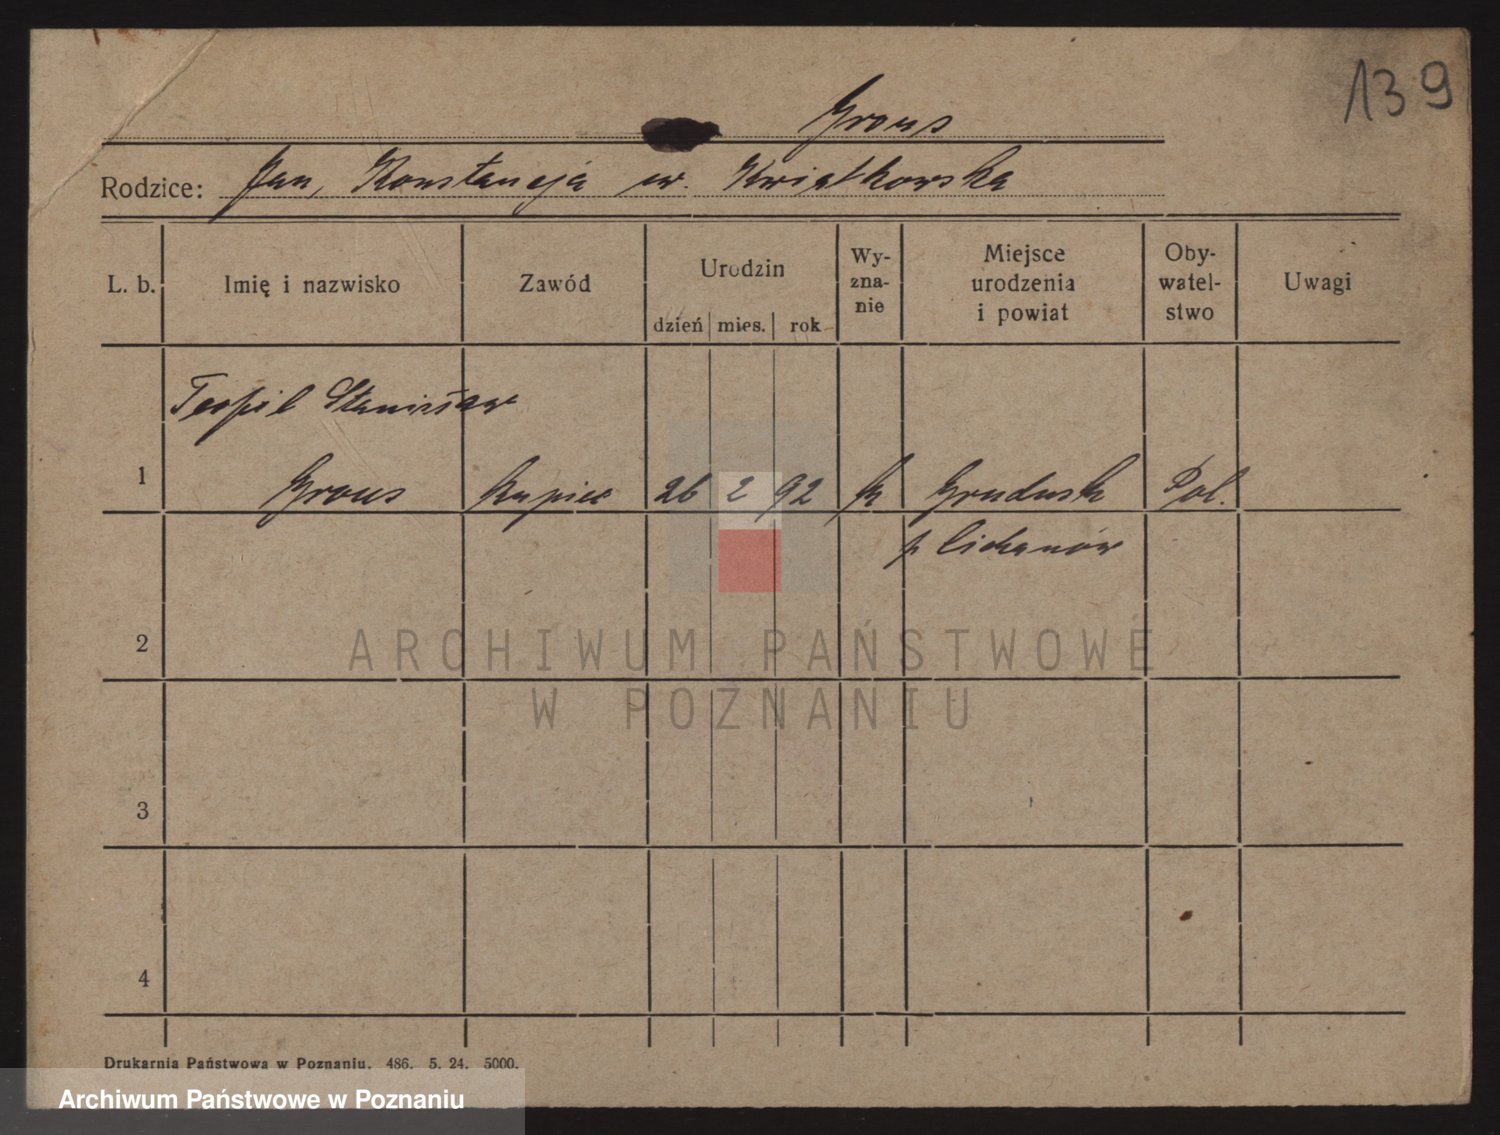 139
Grous
Rodzice: Jan, Konstancja ur. Kwiatkowska
L. b. Imię i nazwisko Zawód Urodzin dzień mies. rok Wy-zna-nie Miejsce urodzenia i powiat Oby-watel-stwo Uwagi
Teofil Stanisław
1 Grous Kupiec 26 2 92 k Grudusk Pol.
p Ciechanów
2
ARCHIWUM PAŃSTWOWE
W POZNANIU
3
4
Drukarnia Państwowa w Poznaniu. 486. 5. 24. 5000.
Archiwum Państwowe w Poznaniu